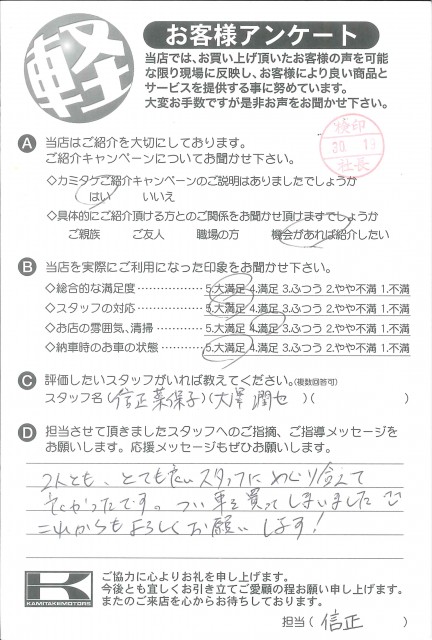 軽
お客様アンケート
当店では、お買い上げ頂いたお客様の声を可能
な限り現場に反映し、お客様により良い商品と
サービスを提供する事に努めています。
大変お手数ですが是非お声をお聞かせ下さい。
検印
30. 19
社長
A 当店はご紹介を大切にしております。
ご紹介キャンペーンについてお聞かせ下さい。
◇カミタケご紹介キャンペーンのご説明はありましたでしょうか
はい いいえ
◇具体的にご紹介頂ける方とのご関係をお聞かせ頂けますでしょうか
ご親族 ご友人 職場の方 機会があれば紹介したい
B 当店を実際にご利用になった印象をお聞かせ下さい。
◇総合的な満足度 ……………… 5.大満足 4.満足 3.ふつう 2.やや不満 1.不満
◇スタッフの対応 ……………… 5.大満足 4.満足 3.ふつう 2.やや不満 1.不満
◇お店の雰囲気、清掃 ………… 5.大満足 4.満足 3.ふつう 2.やや不満 1.不満
◇納車時のお車の状態 ………… 5.大満足 4.満足 3.ふつう 2.やや不満 1.不満
C 評価したいスタッフがいれば教えてください。(複数回答可)
スタッフ名(信正菜保子)(大澤潤也)( )
D 担当させて頂きましたスタッフへのご指摘、ご指導メッセージを
お願いします。応援メッセージもぜひお願いします。
2人とも、とても良いスタッフにめぐり会えて
よかったです。つい車を買ってしまいました
これからもよろしくお願いします!
K
KAMITAKEMOTORS
ご協力に心よりお礼を申し上げます。
今後とも宜しくお引き立てご愛顧の程お願い申し上げます。
またのご来店を心からお待ちしております。
担当( 信正 )